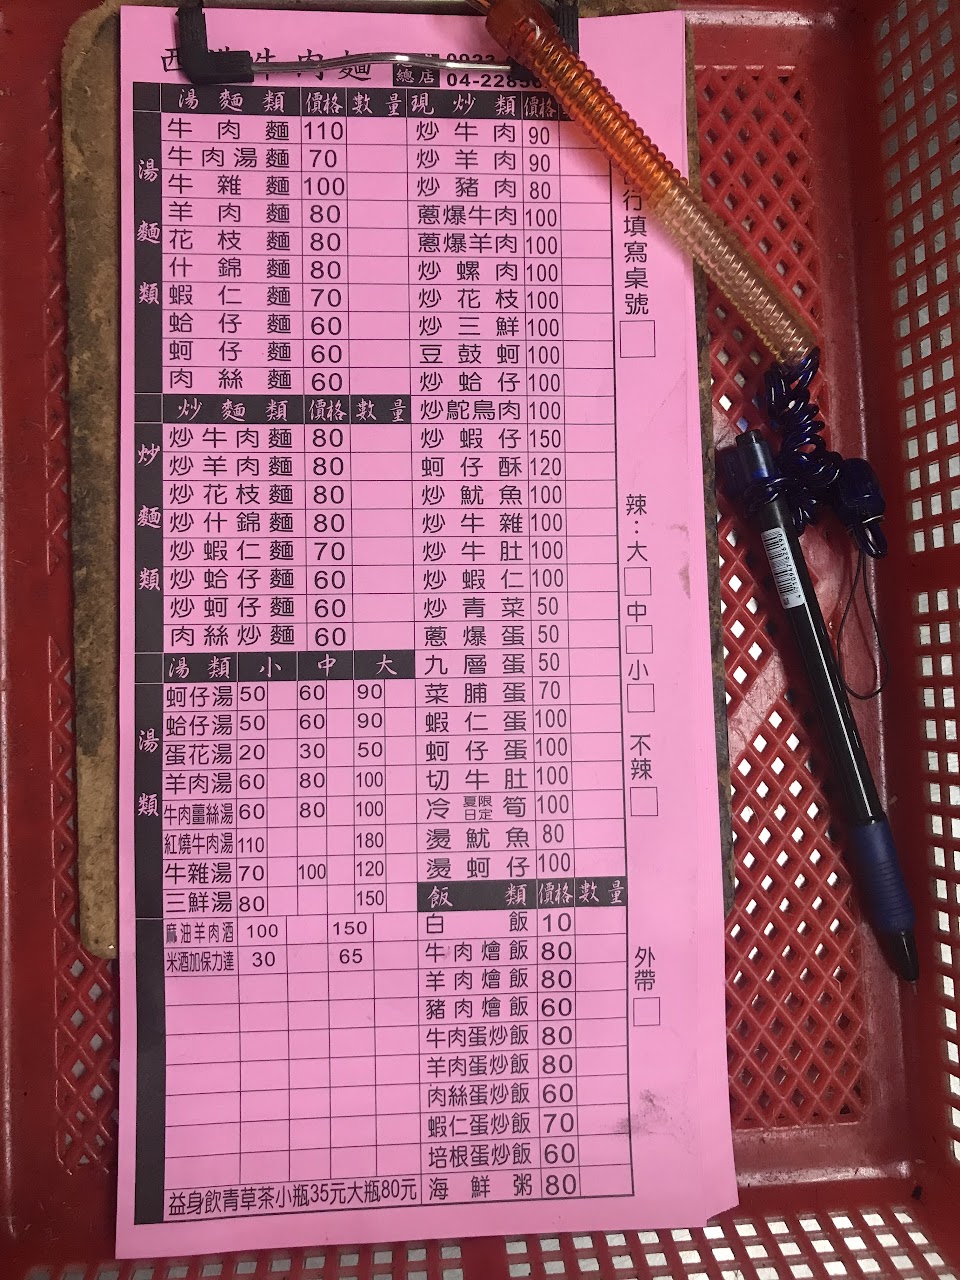 牛肉麵
總店 04-2285
湯麵類 價格 數量
湯麵類
牛肉麵 110
牛肉湯麵 70
牛雜麵 100
羊肉麵 80
花枝麵 80
什錦麵 80
蝦仁麵 70
蛤仔麵 60
蚵仔麵 60
肉絲麵 60
炒麵類 價格 數量
炒麵類
炒牛肉麵 80
炒羊肉麵 80
炒花枝麵 80
炒什錦麵 80
炒蝦仁麵 70
炒蛤仔麵 60
炒蚵仔麵 60
肉絲炒麵 60
湯類 小 中 大
湯類
蚵仔湯 50 60 90
蛤仔湯 50 60 90
蛋花湯 20 30 50
羊肉湯 60 80 100
牛肉薑絲湯 60 80 100
紅燒牛肉湯 110 180
牛雜湯 70 100 120
三鮮湯 80 150
麻油羊肉酒 100 150
米酒加保力達 30 65
益身飲青草茶小瓶35元大瓶80元
現炒類 價格
炒牛肉 90
炒羊肉 90
炒豬肉 80
蔥爆牛肉 100
蔥爆羊肉 100
炒螺肉 100
炒花枝 100
炒三鮮 100
豆鼓蚵 100
炒蛤仔 100
炒鴕鳥肉 100
炒蝦仔 150
蚵仔酥 120
炒魷魚 100
炒牛雜 100
炒牛肚 100
炒蝦仁 100
炒青菜 50
蔥爆蛋 50
九層蛋 50
菜脯蛋 70
蝦仁蛋 100
蚵仔蛋 100
切牛肚 100
冷筍 夏日限定 100
燙魷魚 80
燙蚵仔 100
飯類 價格 數量
白飯 10
牛肉燴飯 80
羊肉燴飯 80
豬肉燴飯 60
牛肉蛋炒飯 80
羊肉蛋炒飯 80
肉絲蛋炒飯 60
蝦仁蛋炒飯 70
培根蛋炒飯 60
海鮮粥 80
行填寫桌號
辣：大 中 小 不辣
外帶